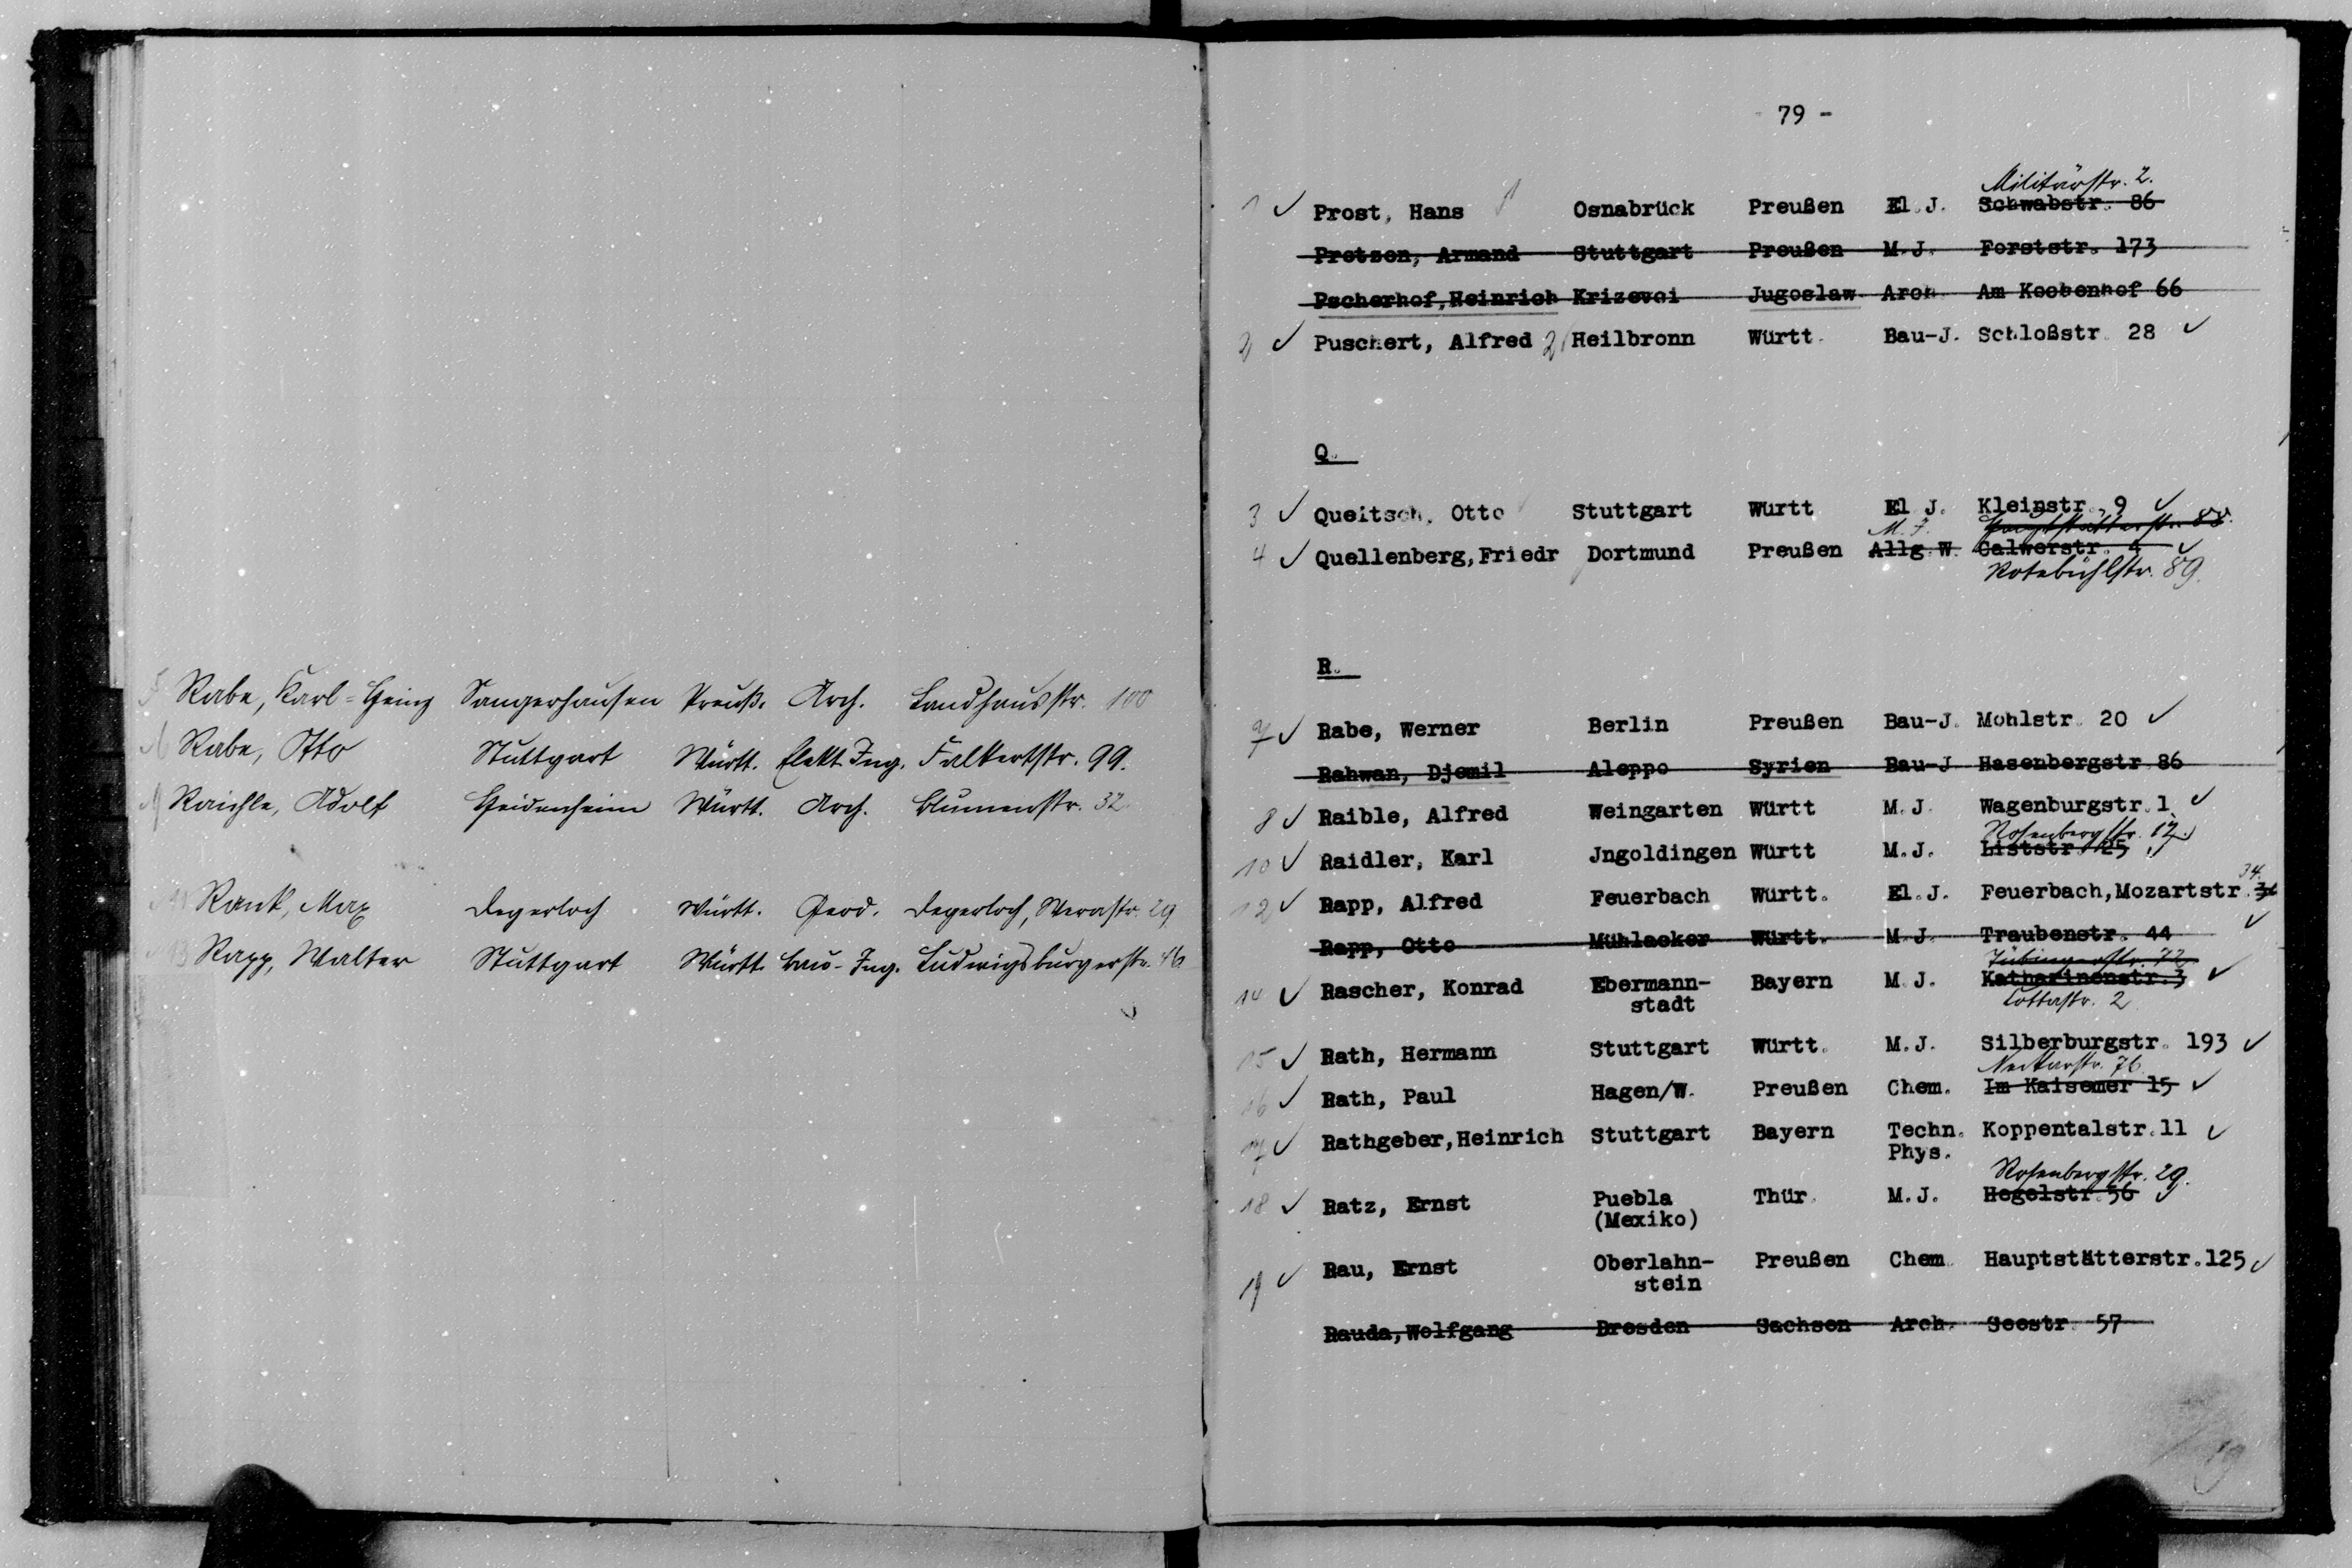 5 Rabe, Karl-Heinz Sangerhausen Preuß. Arch. Landhausstr. 100
6 Rabe, Otto Stuttgart Württ. Elekt. Ing. Falkertstr. 99.
9 Raichle, Adolf Heidenheim Württ. Arch. Blumenstr. 32
11 Rank, Max Degerloch Württ. Geod. Degerloch, Werastr. 29
13 Rapp, Walter Stuttgart Württ. Bau-Ing. Ludwigsburgerstr. 46
79 -
Militärstr. 2.
1 ✓ Prost, Hans 1 Osnabrück Preußen El.J. Schwabstr. 86
Protzen, Armand Stuttgart Preußen M.J. Forststr. 173
Pscherhof, Heinrich Krizevci Jugoslaw. Arch. Am Kochenhof 66
2 ✓ Puschert, Alfred 2 Heilbronn Württ. Bau-J. Schloßstr. 28 ✓
Q.
3 ✓ Queitsch, Otto Stuttgart Württ El J. Kleinstr. 9 ✓
M.J. Hauptstätterstr. 88.
4 ✓ Quellenberg, Friedr Dortmund Preußen Allg.W. Calwerstr. 4 ✓
Rotebühlstr. 89.
R.
7 ✓ Rabe, Werner Berlin Preußen Bau-J. Mohlstr. 20 ✓
Rahwan, Djemil Aleppo Syrien Bau-J Hasenbergstr 86
8 ✓ Raible, Alfred Weingarten Württ M.J. Wagenburgstr. 1 ✓
Rosenbergstr. 17.
10 ✓ Raidler, Karl Jngoldingen Württ M.J. Liststr. 25 ✓
34.
12 ✓ Rapp, Alfred Feuerbach Württ. El.J. Feuerbach, Mozartstr. 36
✓
Rapp, Otto Mühlacker Württ. M.J. Traubenstr. 44
Tübingerstr. 72
14 ✓ Rascher, Konrad Ebermann- Bayern M.J. Katharinenstr. 3 ✓
stadt Cottastr. 2
15 ✓ Rath, Hermann Stuttgart Württ. M.J. Silberburgstr. 193 ✓
Neckarstr. 76.
16 ✓ Rath, Paul Hagen/W. Preußen Chem. Im Kaisemer 15 ✓
17 ✓ Rathgeber, Heinrich Stuttgart Bayern Techn. Koppentalstr. 11 ✓
Phys.
Rosenbergstr. 29.
18 ✓ Ratz, Ernst Puebla Thür. M.J. Hegelstr. 56 ✓
(Mexiko)
19 ✓ Rau, Ernst Oberlahn- Preußen Chem. Hauptstätterstr. 125 ✓
stein
Rauda, Wolfgang Dresden Sachsen Arch. Seestr. 57
19